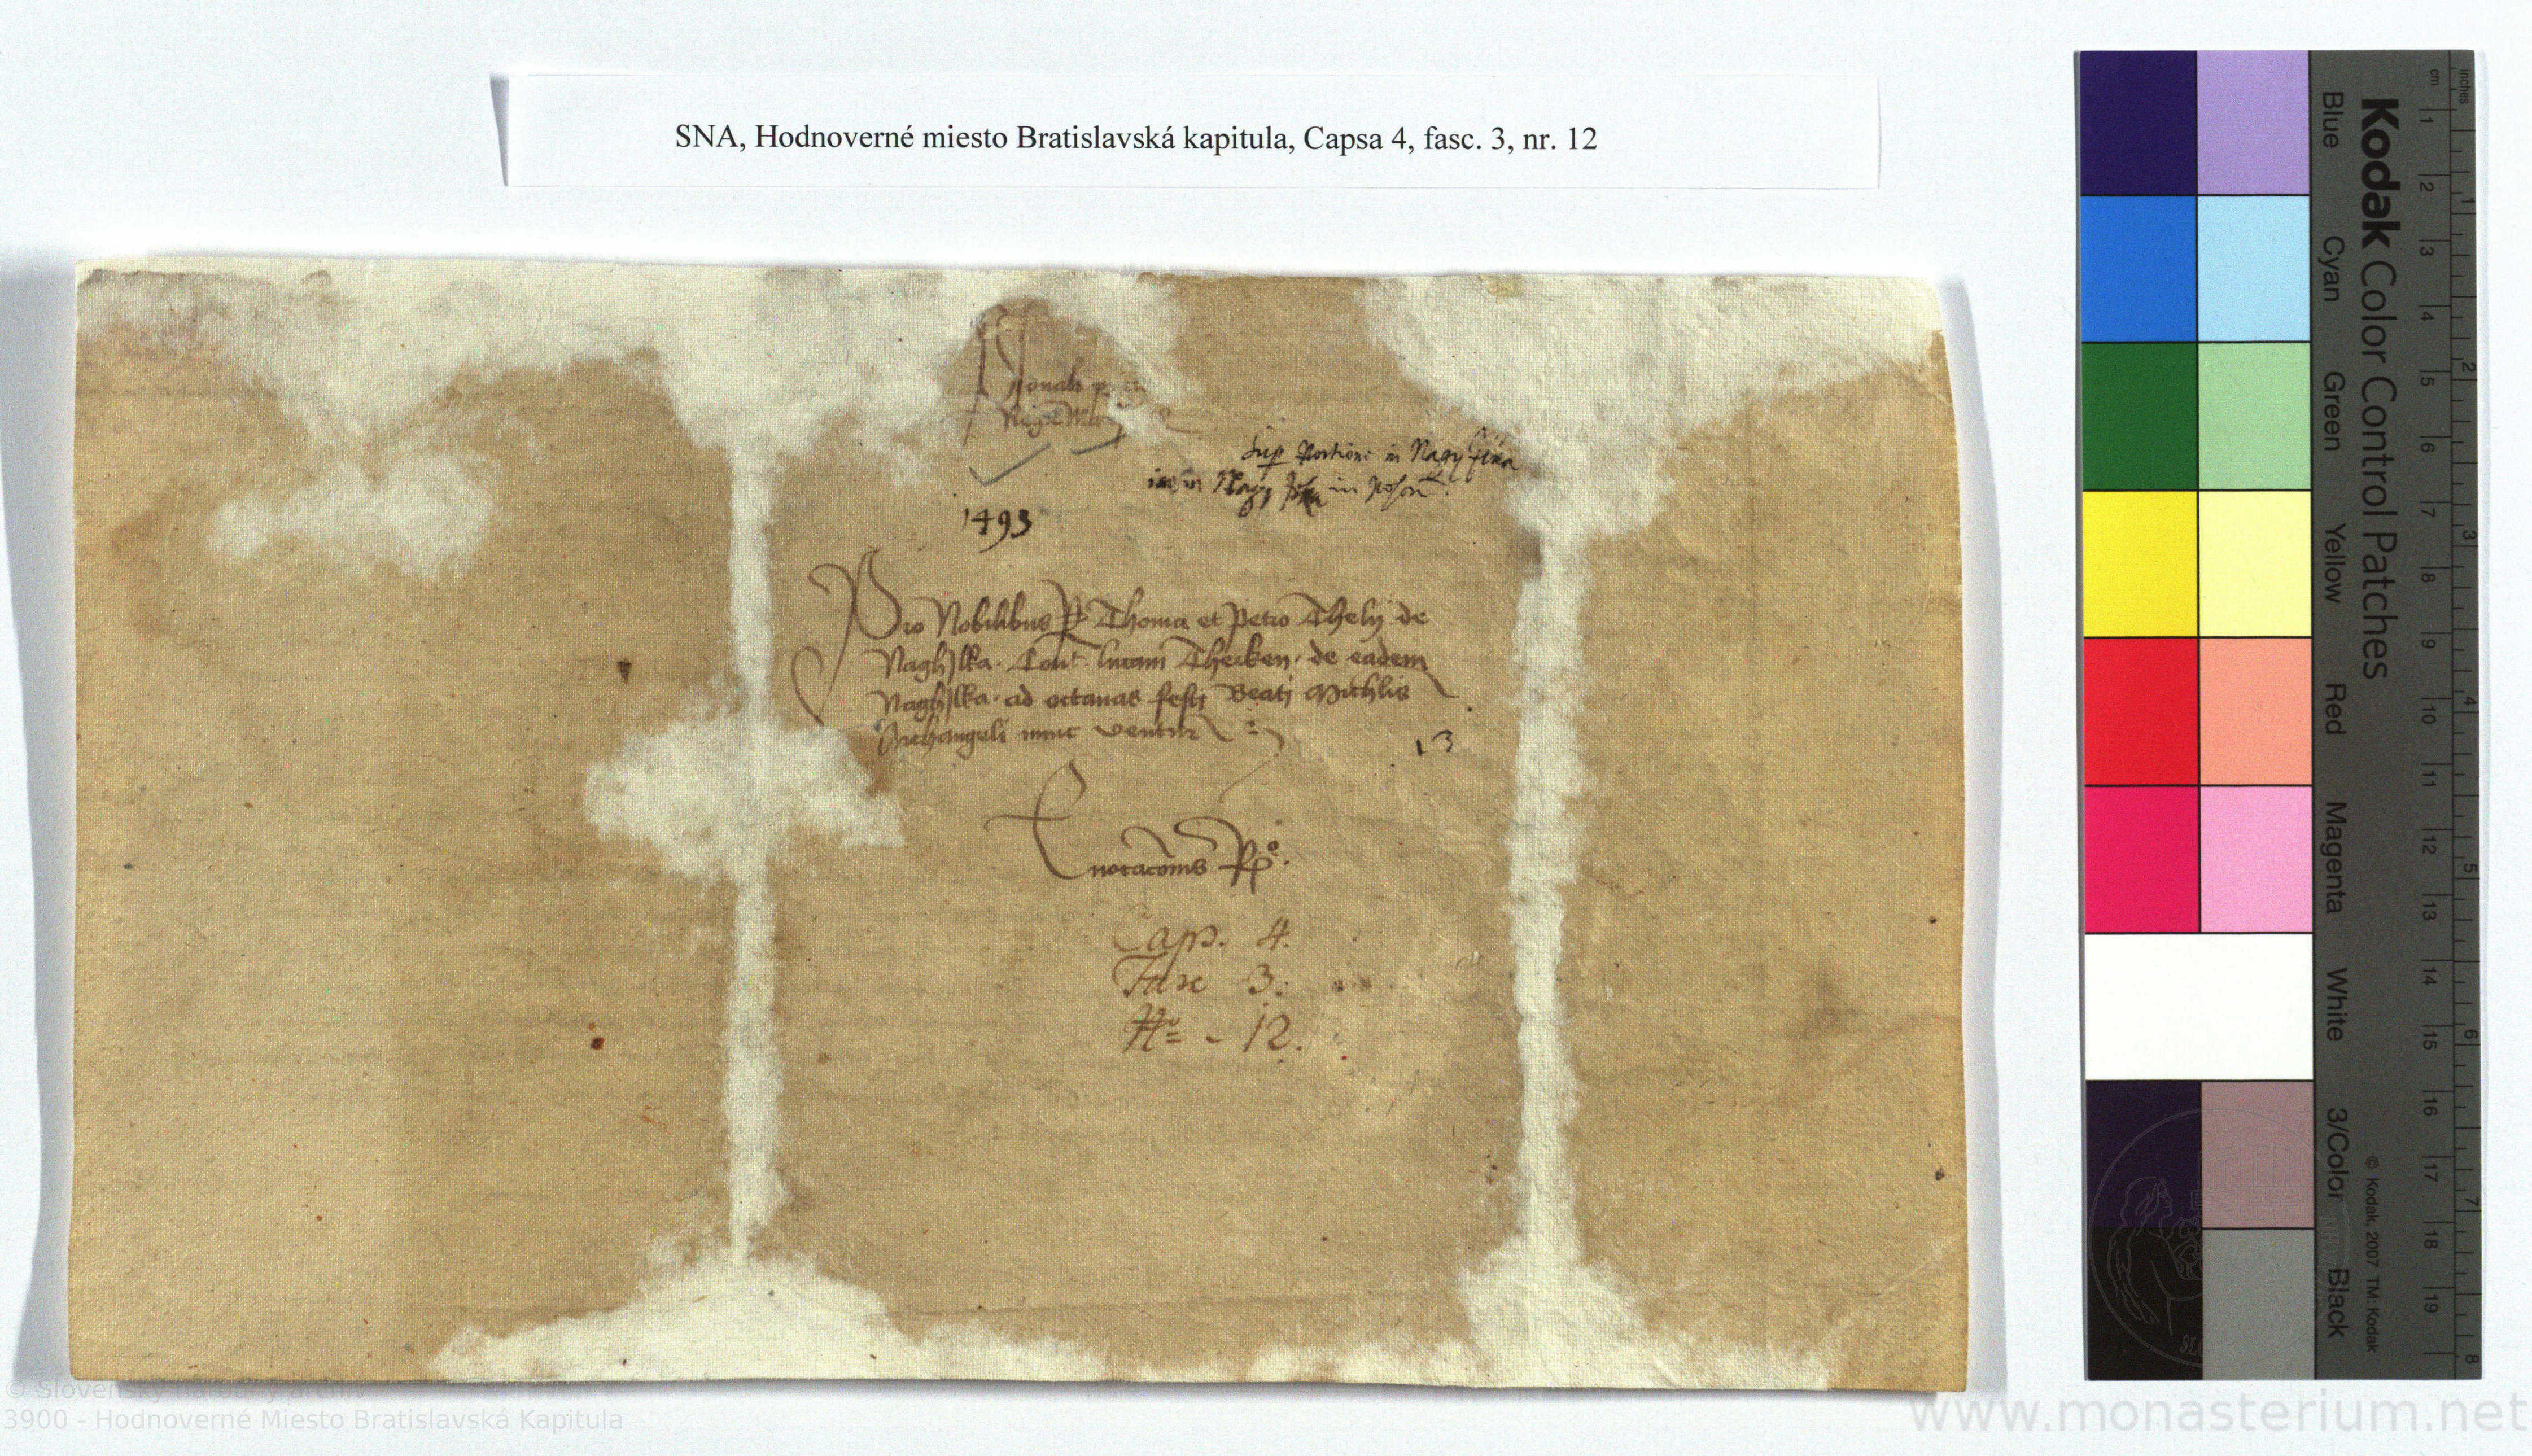 SNA, Hodnoverné miesto Bratislavská kapitula, Capsa 4, fasc. 3, nr. 12
Sup portione in Nagy
in Nagy in Poson
1493
Pro Nobilibus Thoma et Petro Thely de
NaghJlka. Cont lucam Thecken. de eadem
NaghJlka. ad octauas festj Beatj Michlis
Archangeli nunc ventur
13
notacois Rp
Caps. 4.
Fasc 3.
No - 12.
Kodak Color Control Patches
Blue Cyan Green Yellow Red Magenta White 3/Color Black
© Kodak, 2007 TM: Kodak
cm 1 2 3 4 5 6 7 8 9 10 11 12 13 14 15 16 17 18 19
inches 1 2 3 4 5 6 7 8
© Slovenský národný archív
3900 - Hodnoverné Miesto Bratislavská Kapitula
www.monasterium.net